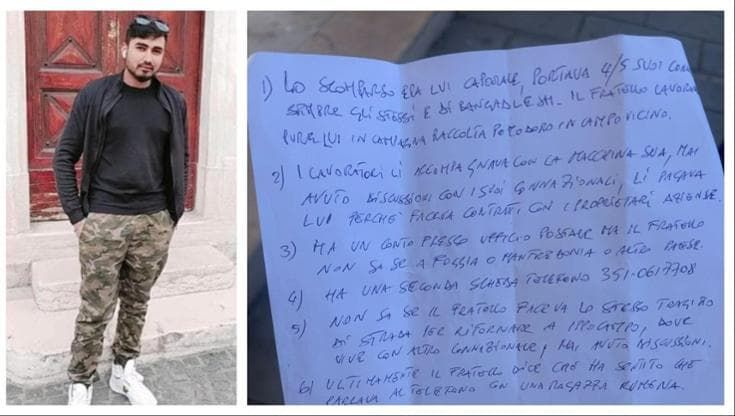 1) LO SCOMPARSO ERA LUI CAPORALE, PORTAVA 4/5 SUOI CONN
SEMPRE GLI STESSI E DI BANGADLESH. IL FRATELLO LAVORA
PURE LUI IN CAMPAGNA RACCOLTA POMODORO IN CAMPO VICINO.
2) I LAVORATORI LI ACCOMPAGNAVA CON LA MACCHINA SUA, MAI
AVUTO DISCUSSIONI CON I SUOI CONNAZIONALI, LI PAGAVA
LUI PERCHE' FACEVA CONTRATTI CON I PROPRIETARI AZIENDE.
3) HA UN CONTO PRESSO UFFICIO POSTALE MA IL FRATELLO
NON SA SE A FOGGIA O MANFREDONIA O ALTRO PAESE.
4) HA UNA SECONDA SCHEDA TELEFONO 351-0617708
5) NON SA SE IL FRATELLO FACEVA LO STESSO TRAGITTO
DI STRADA PER RITORNARE A IPPOCAMPO, DOVE
VIVE CON ALTRO CONNAZIONALE, MAI AVUTO DISCUSSIONI.
6) ULTIMAMENTE IL FRATELLO DICE CHE HA SENTITO CHE
PARLAVA AL TELEFONO CON UNA RAGAZZA RUMENA.